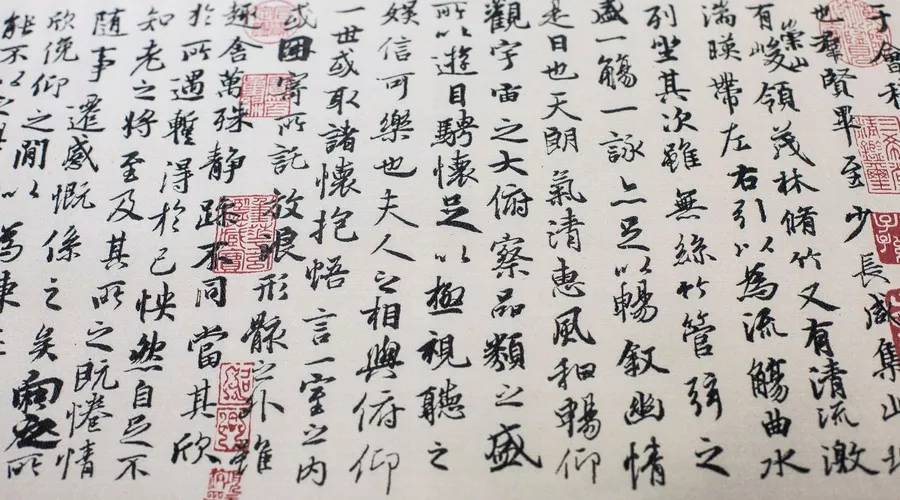 于會
也羣賢畢至少長咸集此
有崇山峻領茂林脩竹又有清流激
湍暎帶左右引以為流觴曲水
列坐其次雖無絲竹管弦之
盛一觴一詠亦足以暢叙幽情
是日也天朗氣清惠風和暢仰
觀宇宙之大俯察品類之盛
所以遊目騁懷足以極視聽之
娛信可樂也夫人之相與俯仰
一世或取諸懷抱悟言一室之內
或因寄所託放浪形骸之外雖
趣舍萬殊静躁不同當其欣
於所遇蹔得於己怏然自足不
知老之將至及其所之既惓情
隨事遷感慨係之矣向之所
欣俛仰之閒以為陳
能不以之